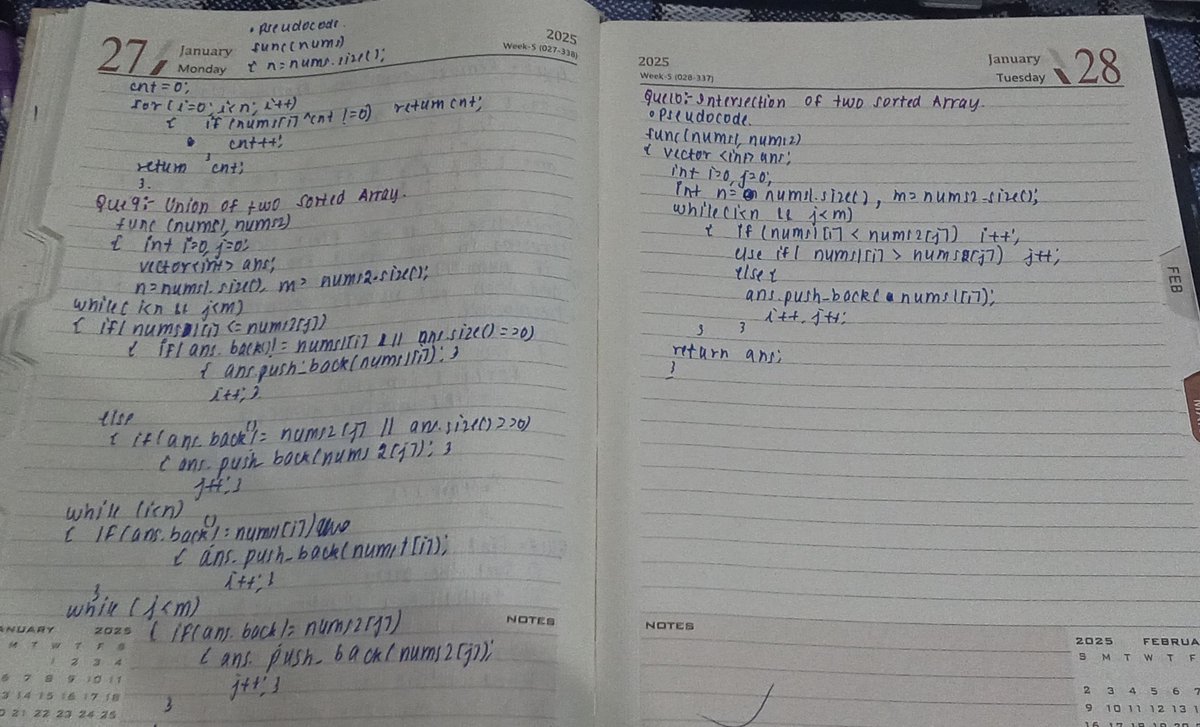 27
January
Monday
2025
Week-5 (027-338)
• Pseudocode.
func(nums)
{ n=nums.size();
cnt=0;
for(i=0; i<n; i++)
{ if (nums[i]^cnt !=0) return cnt;
cnt++;
}
return cnt;
}.
Que9:- Union of two sorted Array.
func (nums1, nums2)
{ int i=0, j=0;
vector<int> ans;
n=nums1.size(), m= nums2.size();
while( i<n && j<m)
{ if( nums1[i] <= nums2[j])
{ if( ans.back()!= nums1[i] || ans.size()==0)
{ ans.push_back(nums1[i]); }
i++; }
else
{ if(ans.back()!= nums2[j] || ans.size()==0)
{ ans.push_back(nums2[j]); }
j++; }
while (i<n)
{ if(ans.back()!=nums1[i])
{ ans.push_back(nums1[i]);
i++; }
}
while (j<m)
{ if(ans.back!= nums2[j])
{ ans.push_back(nums2[j]);
j++; }
}
NOTES
ANUARY 2025
M T W T F S
1 2 3 4
6 7 8 9 10 11
3 14 15 16 17 18
0 21 22 23 24 25
2025
Week-5 (028-337)
January
Tuesday
28
Que10:- Intersection of two sorted Array.
• Pseudocode.
func(nums1, nums2)
{ vector <int> ans;
int i=0, j=0;
int n= nums1.size(), m=nums2.size();
while(i<n && j<m)
{ if (nums1[i] < nums2[j]) i++;
else if( nums1[i] > nums2[j]) j++;
else {
ans.push_back( nums1[i]);
i++, j++;
} }
return ans;
}
FEB
NOTES
2025 FEBRUA
S M T W T F
2 3 4 5 6 7
9 10 11 12 13 1
16 17 18 19 20